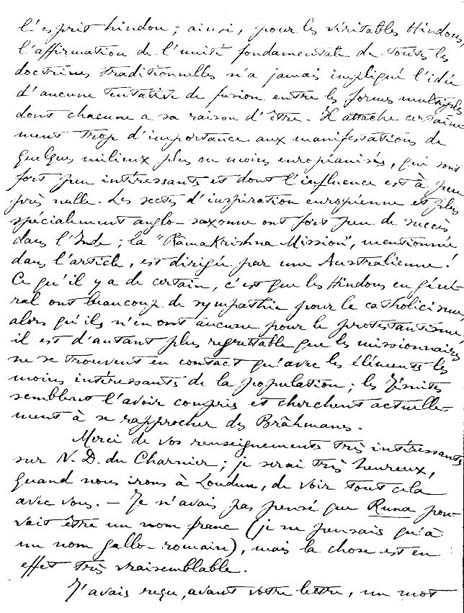 l'esprit hindou ; ainsi, pour les véritables Hindous,
l'affirmation de l'unité fondamentale de toutes les
doctrines traditionnelles n'a jamais impliqué l'idée
d'aucune tentative de fusion entre les formes multiples
dont chacune a sa raison d'être. Il attache certaine-
ment trop d'importance aux manifestations de
quelques milieux plus ou moins européanisés, qui sont
fort peu intéressants et dont l'influence est à peu
près nulle. Les sectes d'inspiration européenne et plus
spécialement anglo-saxonne ont fort peu de succès
dans l'Inde ; la "Ramakrishna Mission", mentionnée
dans l'article, est dirigée par une Australienne !
Ce qu'il y a de certain, c'est que les Hindous en géné-
ral ont beaucoup de sympathie pour le catholicisme,
alors qu'ils n'en ont aucune pour le protestantisme ;
il est d'autant plus regrettable que les missionnaires
ne se trouvent en contact qu'avec les éléments les
moins intéressants de la population ; les Jésuites
semblent l'avoir compris et cherchent actuelle-
ment à se rapprocher des Brâhmanes.
Merci de vos renseignements très intéressants
sur N. D. du Charnier ; je serai très heureux,
quand nous irons à Loudun, de voir tout cela
avec vous. — Je n'avais pas pensé que Runa pou-
vait être un nom franc (je ne pensais qu'à
un nom gallo-romain), mais la chose est en
effet très vraisemblable.
J'avais reçu, avant votre lettre, un mot